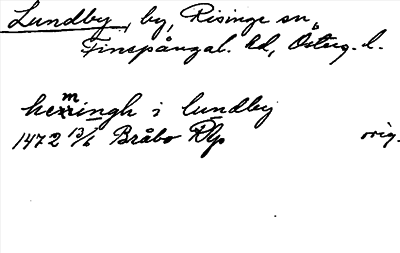 Lundby, by, Risinge sn,
Finspångal. hd, Österg. l.
hemingh i lundby
1472 13/6 Bråbo RAp orig.